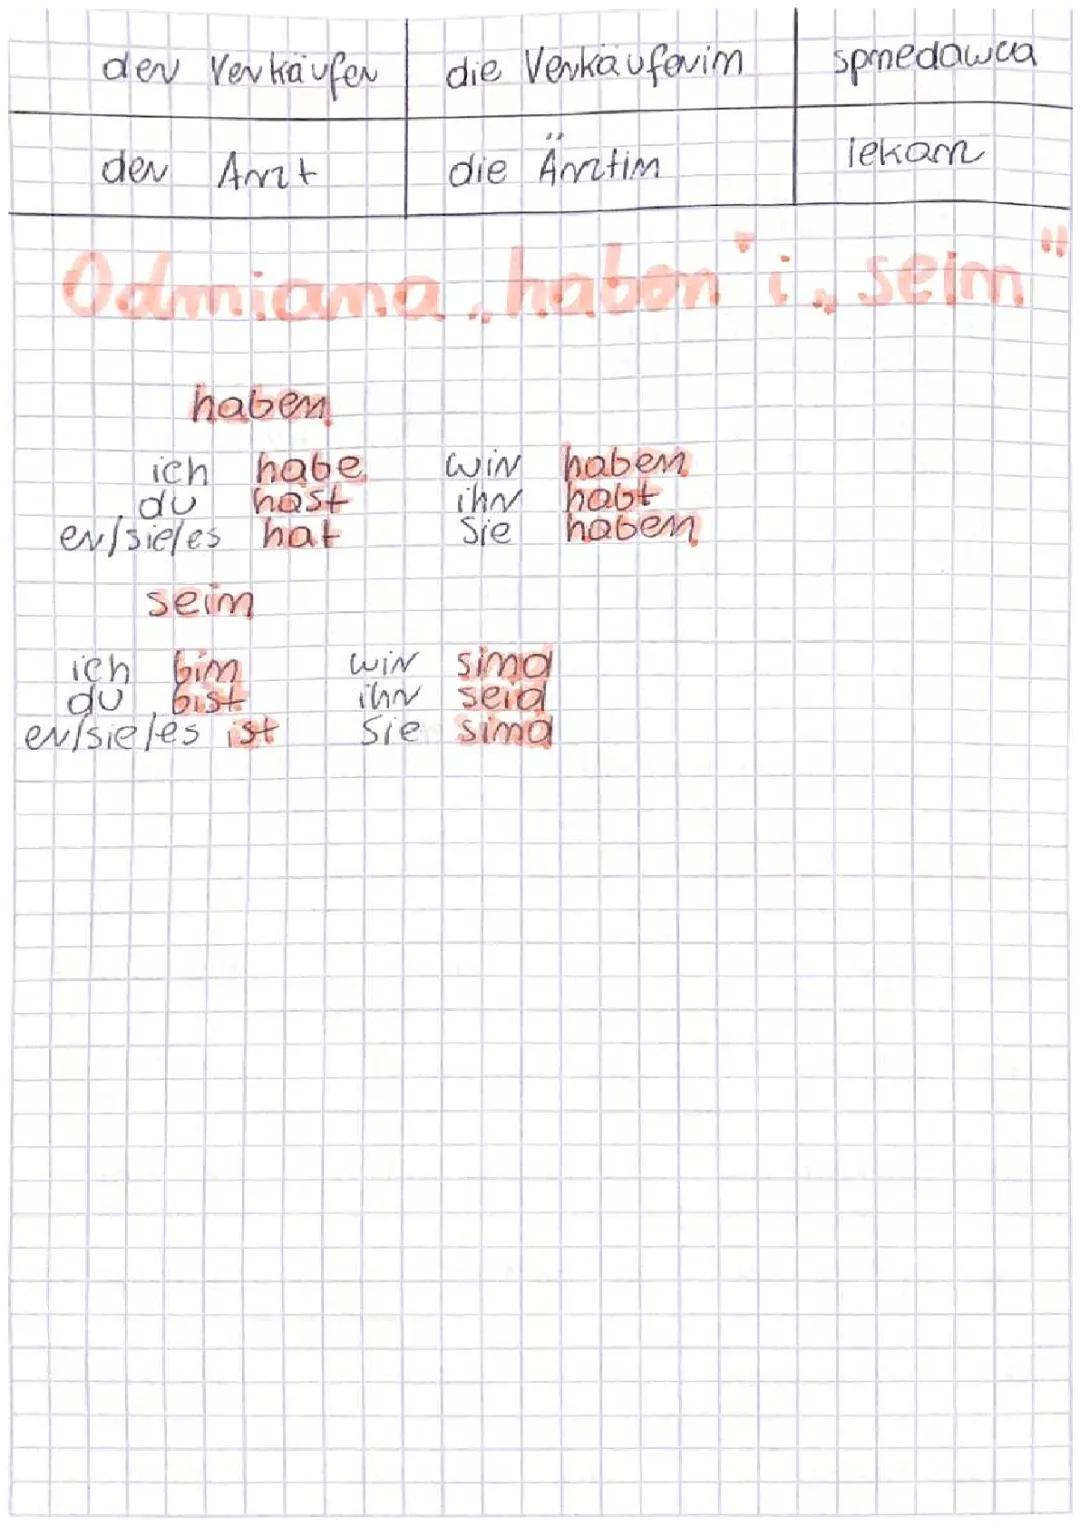 der Verkäufer die Verkäuferin sprzedawca
der Arzt die Ärztin lekarz
Odmiana „haben" i „sein"
haben
ich habe wir haben
du hast ihr habt
er/sie/es hat Sie haben
sein
ich bin wir sind
du bist ihr seid
er/sie/es ist Sie sind